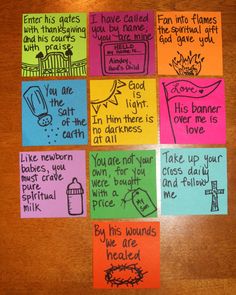 Enter his gates
with thanksgiving
and his courts
with praise
I have called
you by name;
you are mine
HELLO
my name is...
Ainsley,
God's Child
Fan into flames
the spiritual gift
God gave you
You are
the
Salt
of the
earth
God
is
light.
In Him there is
no darkness
at all
Love
His banner
over me is
love
Like newborn
babies, you
must crave
pure
spiritual
milk
You are not your
own, for you
were bought
with a
price
Take up your
cross daily
and follow
me
By his wounds
we are
healed